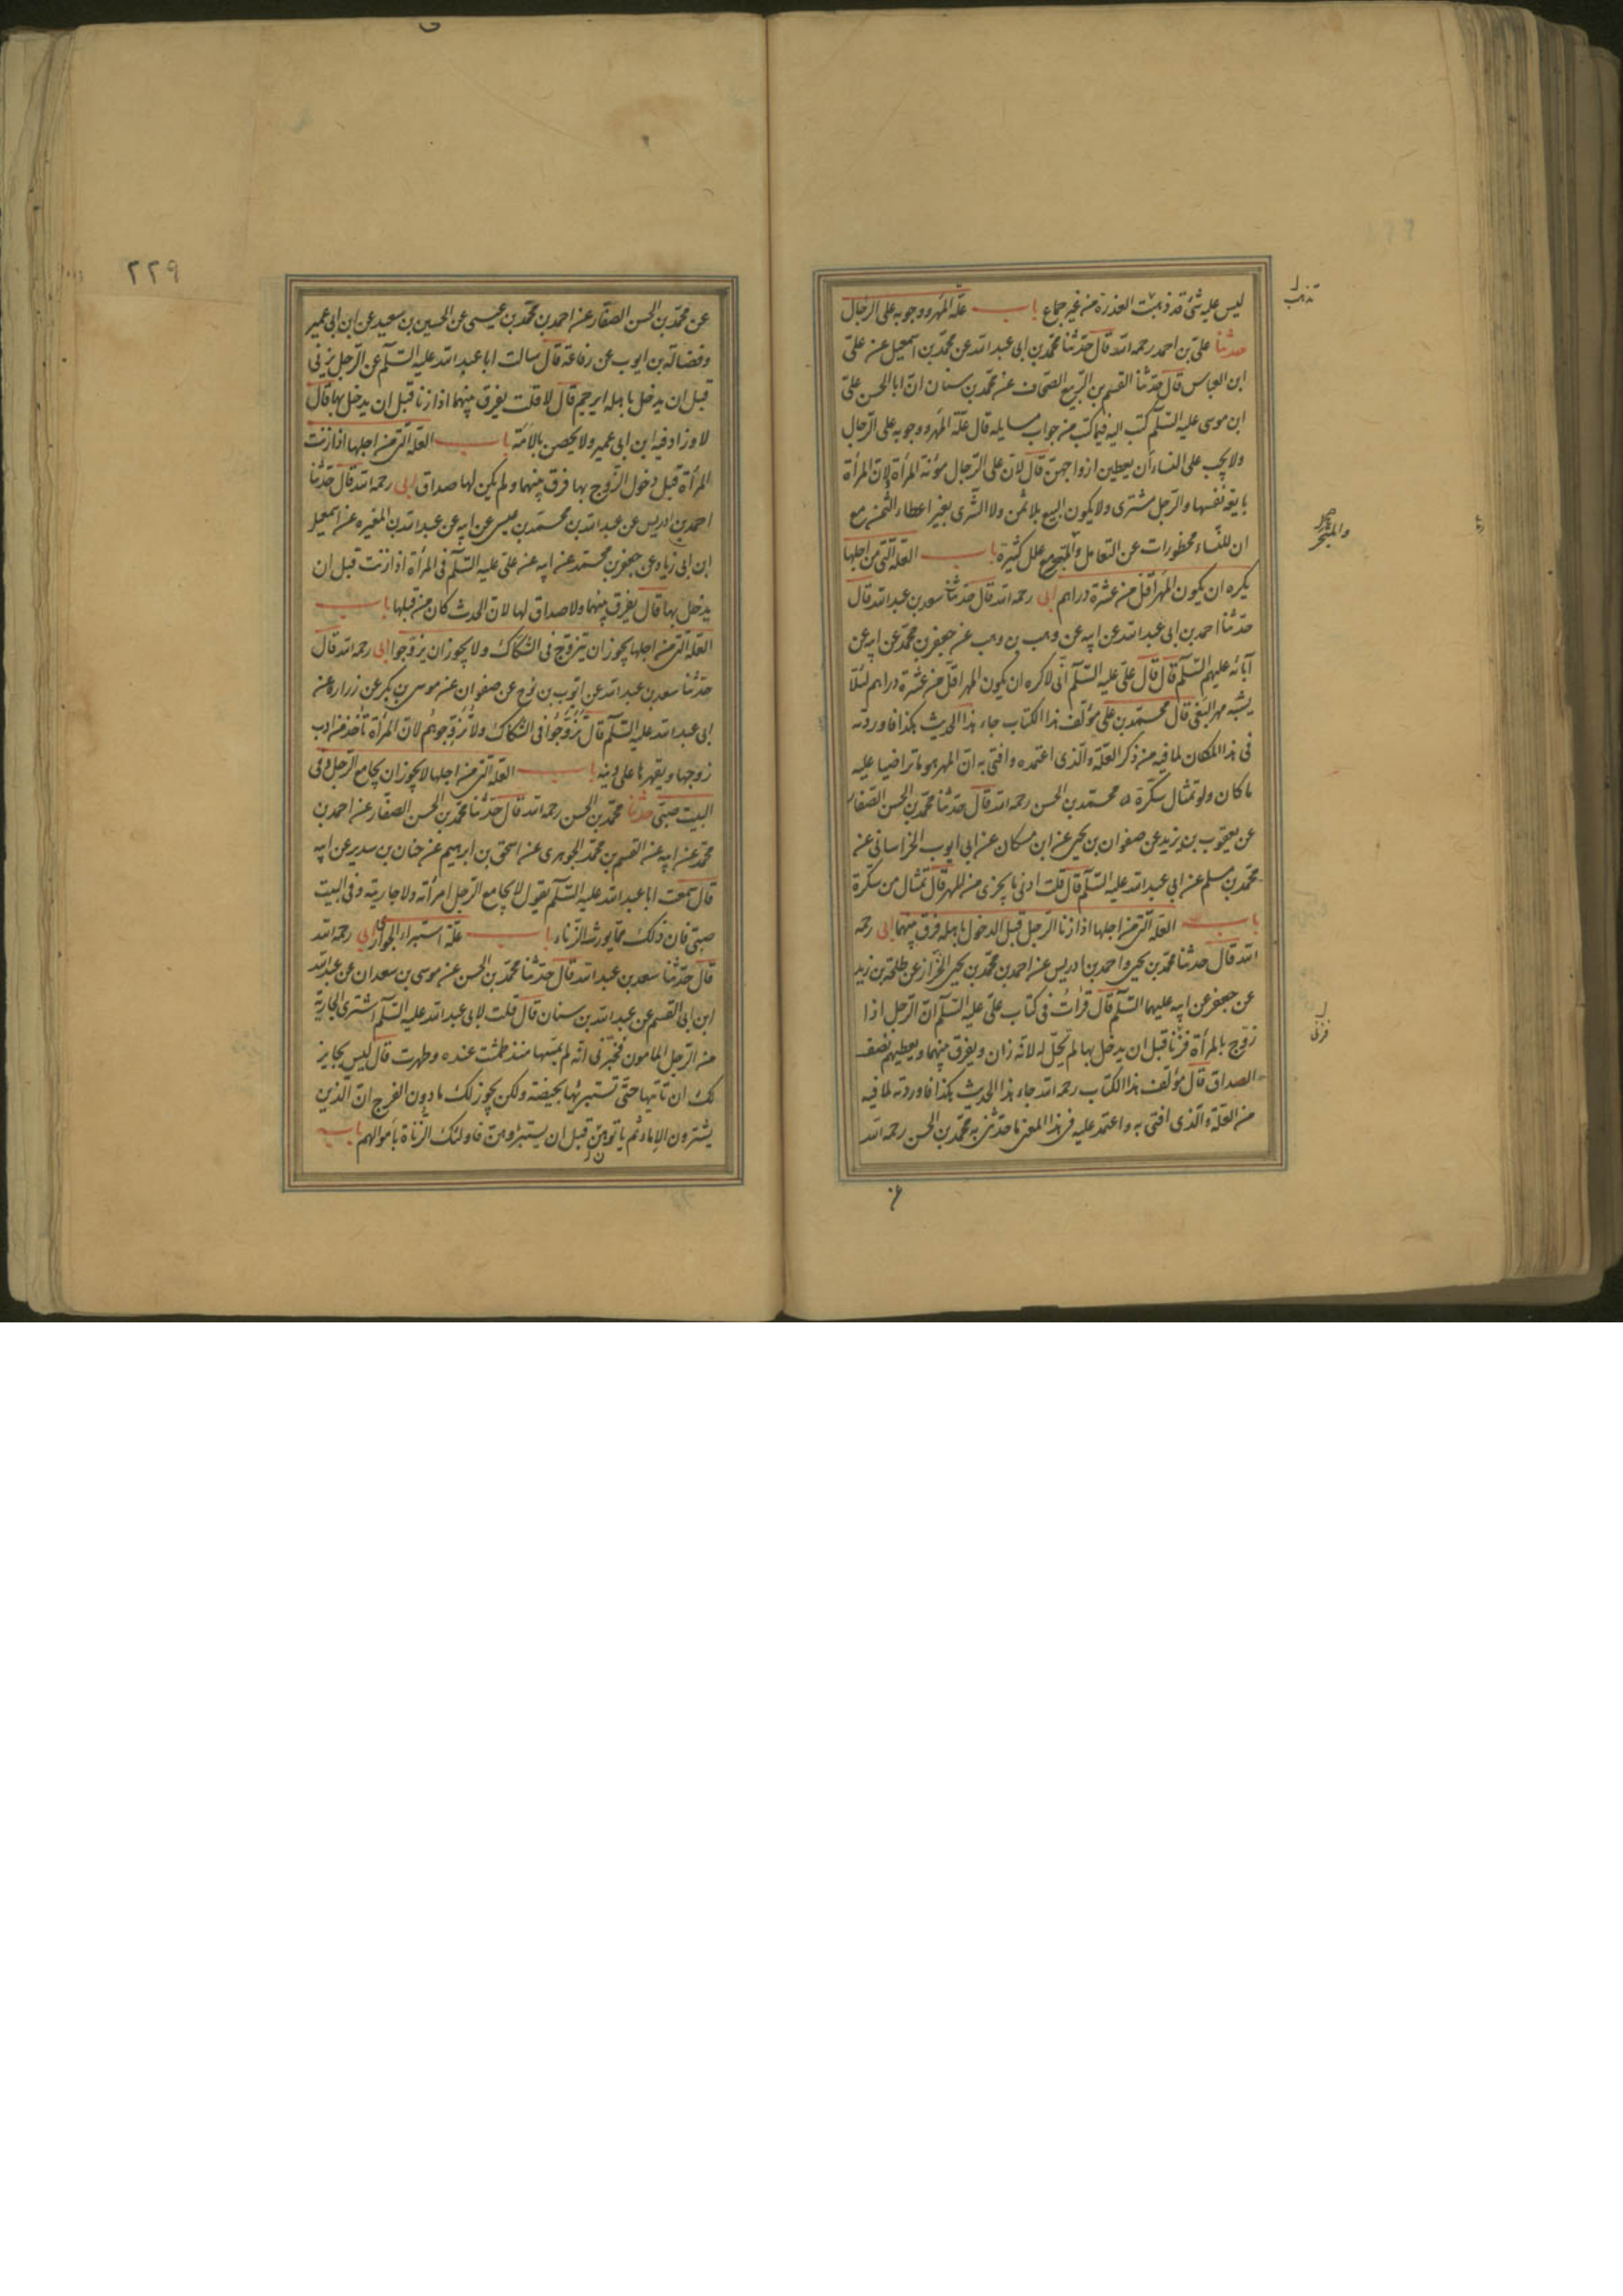 ليس عليه شئ قد ذهبت العذرة من غير جماع باب علّة المهر و وجوبه على الرّجال
حدثنا علىّ بن احمد رحمه الله قال حدّثنا محمّد بن ابى عبد الله عن محمّد بن اسمعيل عن علىّ
ابن العباس قال حدّثنا القسم بن الربيع الصحاف عن محمّد بن سنان انّ ابا الحسن علىّ
ابن موسى عليه السّلم كتب اليه فيما كتب من جواب مسايله قال علّة المهر و وجوبه على الرّجال
ولا يجب على النساء أن يعطين ازواجهنّ قال لانّ على الرّجال مؤنة المرأة لانّ المرأة
بايعة نفسها والرّجل مشترى ولا يكون البيع بلا ثمن ولا الشّرى بغير اعطاء الثّمن مع
ان للنّساء محظورات عن التعامل والمتجر مع علل كثيرة باب العلّة الّتى من اجلها
يكره ان يكون المهر اقل من عشرة دراهم ابى رحمه الله قال حدّثنا سعد بن عبد الله قال
حدّثنا احمد بن ابى عبد الله عن ابيه عن وهب بن وهب عن جعفر بن محمّد عن ابيه عن
آبائه عليهم السّلم قال قال علىّ عليه السّلم انّى لاكره ان يكون المهر اقلّ من عشرة دراهم لئلّا
يشبه مهر البغى قال محمّد بن على مؤلّف هذا الكتاب جاء هذا الحديث هكذا فاوردته
فى هذا المكان لما فيه من ذكر العلّة والّذى اعتمده وافتى به انّ المهر هو ما تراضيا عليه
ما كان ولو تمثال سكّرة محمّد بن الحسن رحمه الله قال حدّثنا محمّد بن الحسن الصّفار
عن يعقوب بن يزيد عن صفوان بن يحيى عن ابن مسكان عن ابى ايوب الخراسانى عن
محمّد بن مسلم عن ابى عبد الله عليه السّلم قال قلت ادنى ما يجزى من المهر قال تمثال من سكّرة
باب العلّة الّتى من اجلها اذا زنا الرّجل قبل الدخول باهله فرق بينهما ابى رحمه
الله قال حدثنا محمّد بن يحيى و احمد بن ادريس عن احمد بن محمّد بن يحيى الخزّاز عن طلحة بن زيد
عن جعفر عن ابيه عليهما السّلم قال قرأت فى كتاب علىّ عليه السّلم انّ الرّجل اذا
زوّج بالمرأة فزنا قبل ان يدخل بها لم تحلّ له لانّه زان ويفرق بينهما ويعطيهم نصف
الصداق قال مؤلّف هذا الكتاب رحمه الله جاء هذا الحديث هكذا فاوردته لما فيه
من العلّة والّذى افتى به واعتمد عليه فى هذا المعنى ما حدّثنى به محمّد بن الحسن رحمه الله
تذهب
والمتجر
عن
٢٢٩
عن محمّد بن الحسن الصفّار عن احمد بن محمّد بن عيسى عن الحسين بن سعيد عن ابن ابى عمير
وفضالة بن ايوب عن رفاعة قال سالت ابا عبد الله عليه السّلم عن الرّجل يزنى
قبل ان يدخل باهله ايرجم قال لا قلت يفرق بينهما اذا زنا قبل ان يدخل بها قال
لا وزاد فيه ابن ابى عمير ولا يحصن بالامة باب العلّة الّتى من اجلها اذا زنت
المرأة قبل دخول الزّوج بها فرق بينهما ولم يكن لها صداق ابى رحمه الله قال حدّثنا
احمد بن ادريس عن عبد الله بن محمّد بن عيسى عن ابيه عن عبد الله بن المغيره عن اسمعيل
ابن ابى زياد عن جعفر بن محمّد عن ابيه عن علىّ عليه السّلم فى المرأة اذا زنت قبل ان
يدخل بها قال يفرق بينهما ولا صداق لها لانّ الحدث كان من قبلها باب
العلّة الّتى من اجلها يجوز ان يتزوّج فى الشّكّاك ولا يجوز ان يزوّجوا ابى رحمه الله قال
حدّثنا سعد بن عبد الله عن ايّوب بن نوح عن صفوان عن موسى بن بكر عن زرارة عن
ابى عبد الله عليه السّلم قال تزوّجوا فى الشّكّاك ولا تزوّجوهم لانّ المرأة تأخذ من ادب
زوجها ويقهرها على دينه باب العلّة الّتى من اجلها لا يجوز ان يجامع الرّجل وفى
البيت صبىّ حدثنا محمّد بن الحسن رحمه الله قال حدّثنا محمّد بن الحسن الصفّار عن احمد بن
محمّد عن ابيه عن القسم بن محمّد الجوهرى عن اسحق بن ابرهيم عن حنان بن سدير عن ابيه
قال سمعت ابا عبد الله عليه السّلم يقول لا يجامع الرّجل امرأته ولا جاريته وفى البيت
صبىّ فان ذلك ممّا يورث الزّناء باب علّة استبراء الجوارى ابى رحمه الله
قال حدّثنا سعد بن عبد الله قال حدّثنا محمّد بن الحسن عن موسى بن سعدان عن عبد الله
ابن ابى القسم عن عبد الله بن سنان قال قلت لابى عبد الله عليه السّلم اشترى الجارية
من الرّجل المامون فيخبرنى انّه لم يمسّها منذ طمثت عنده وطهرت قال ليس بجايز
لك ان تاتيها حتّى تستبرئها بحيضة ولكن يجوز لك ما دون الفرج انّ الّذين
يشترون الاماء ثم ياتوهنّ قبل ان يستبرؤهنّ فاولئك الزّناة بأموالهم باب